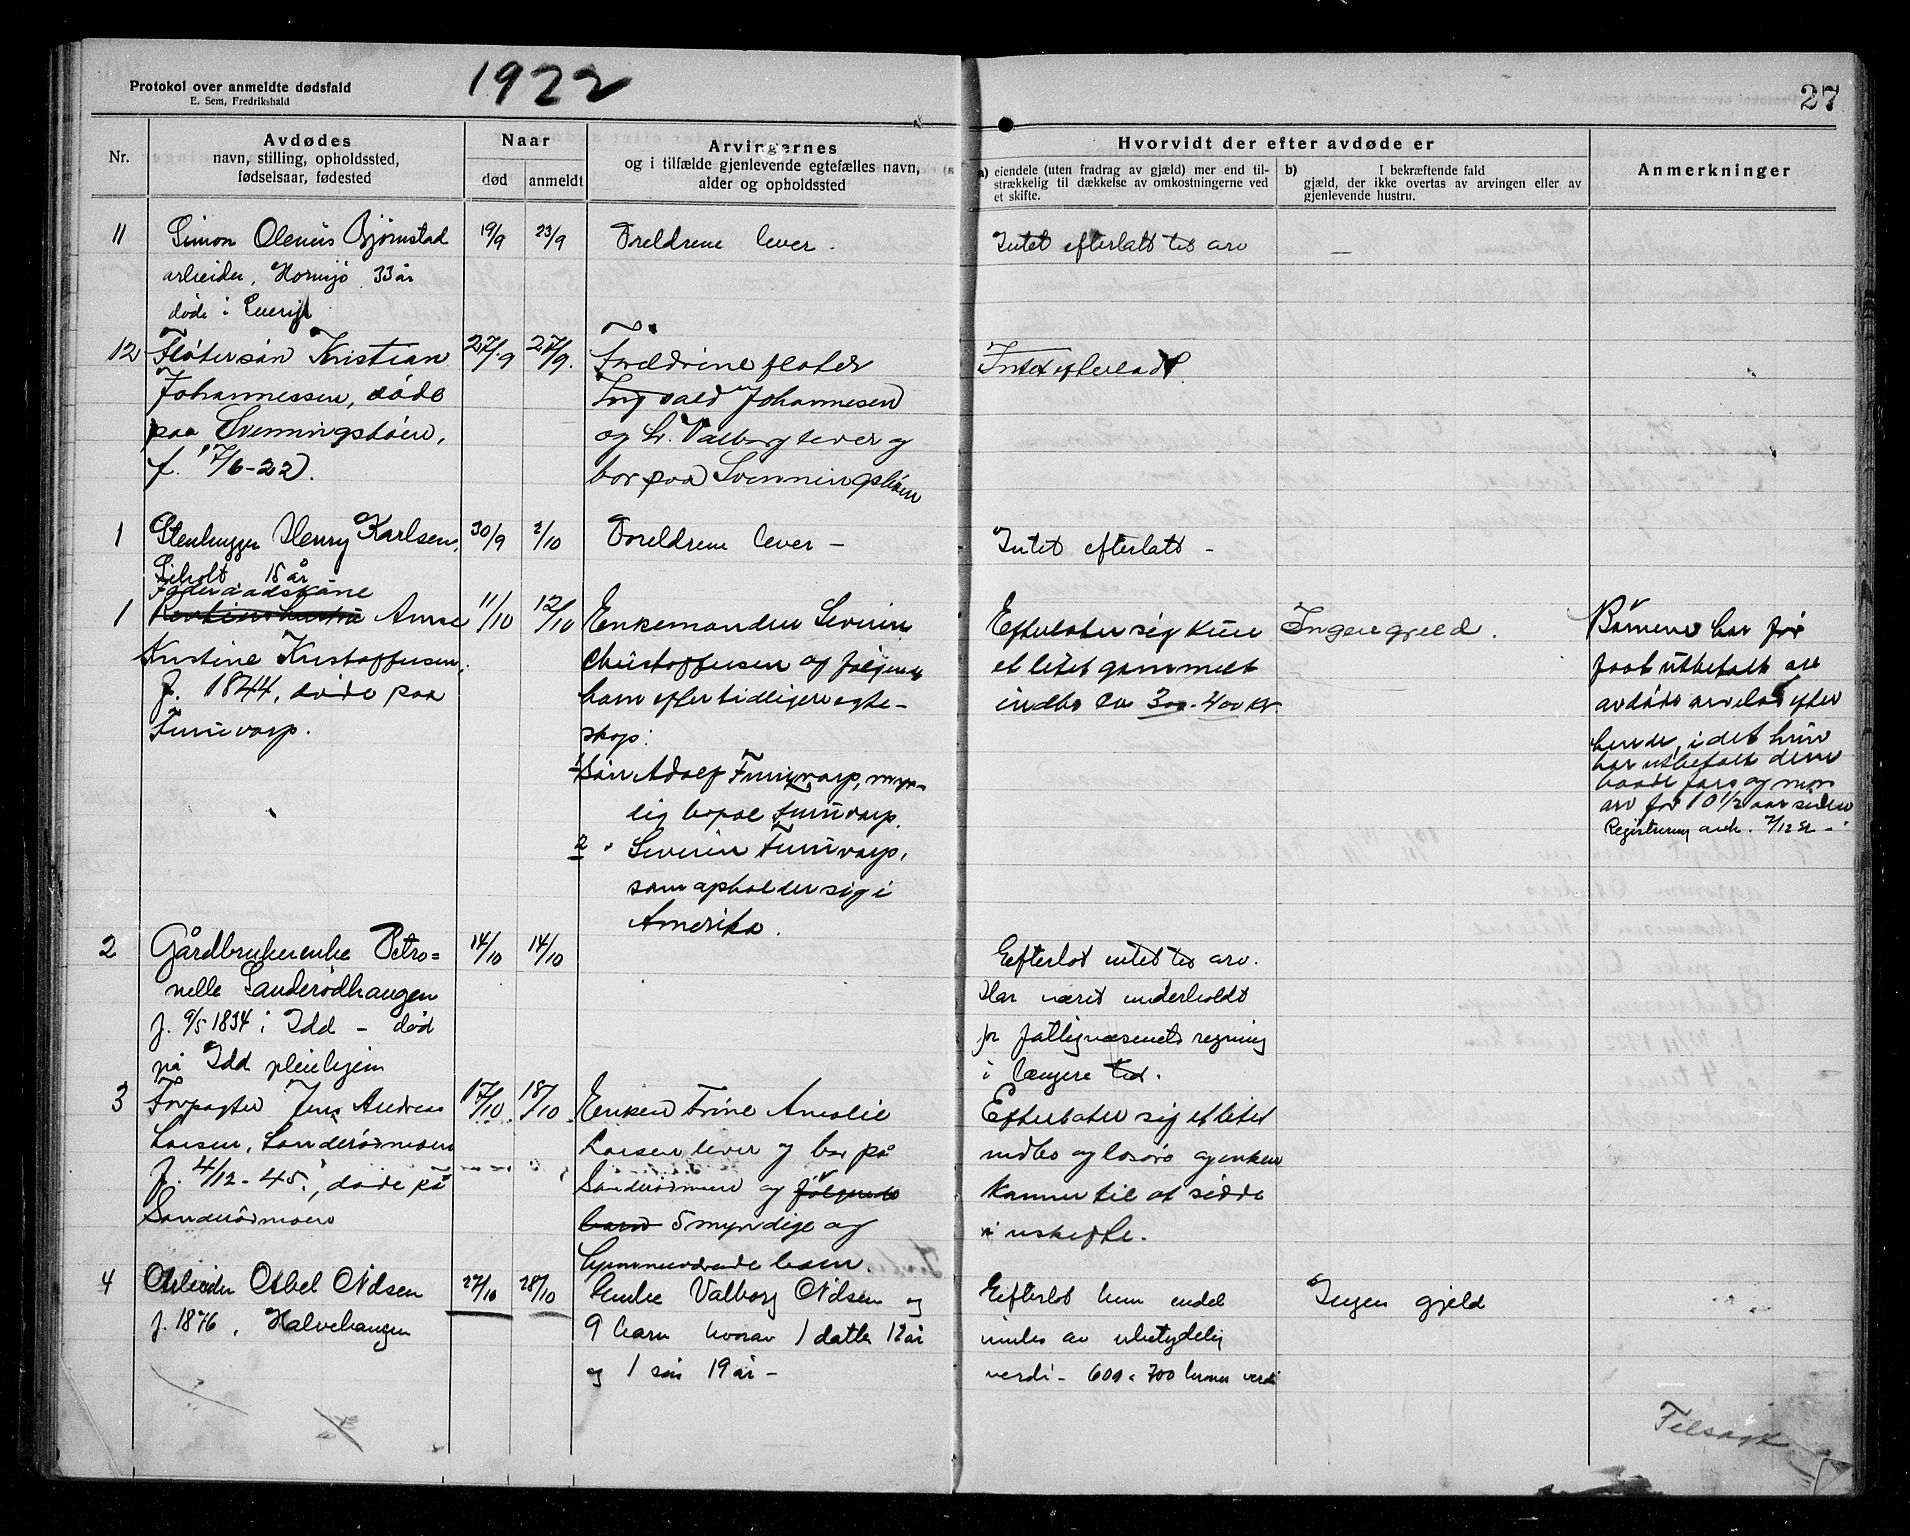 Protokol over anmeldte dødsfald
E. Sem, Fredrikshald
1922
27
Nr.
Avdødes
navn, stilling, opholdssted,
fødselsaar, fødested
Naar
død
anmeldt
Arvingernes
og i tilfælde gjenlevende egtefælles navn,
alder og opholdssted
Hvorvidt der efter avdøde er
a) eiendele (uten fradrag av gjæld) mer end til-
strækkelig til dækkelse av omkostningerne ved
et skifte.
b) I bekræftende fald
gjæld, der ikke overtas av arvingen eller av
gjenlevende hustru.
Anmerkninger
11
Simon Olenius Bjørnstad
arbeider, Hornsjø 33 år
døde i Sverige
19/9
23/9
Foreldrene lever.
Intet efterlatt til arv
—
12
Fløtersøn Kristian
Johannessen, døde
paa Svenningsbøen,
f. 17/6-22.
27/9
27/9.
Foreldrene fløter
Ingvald Johannesen
og h. Valborg lever og
bor paa Svenningsbøen
Intet efterladt.
1
Stenhugger Henry Karlsen,
Liholt 15 år
30/9
2/10
Foreldrene lever —
Intet efterlatt -
1
Føderaadskone
Anne
Kristine Kristoffersen,
f. 1844, døde paa
Furuvarp.
11/10
12/10
Enkemanden Severin
Christoffersen og følgende
barn efter tidligere egte-
skap:
1 Søn Adolf Furuvarp, myn-
dig bopæl Furuvarp.
2 " Severin Furuvarp,
som opholder sig i
Amerika.
Efterlater sig kun
et litet gammelt
indbo ca 300-400 kr.
Ingen gjeld.
Børnene har før
faat utbetalt sit
avdøde arvelod efter
hende, idet hun
har utbetalt dem
baade fars og mors
arv for 10 1/2 aar siden
Registrering avh. 7/12 22 -
2
Gårdbrukerenke Petro=
nelle Sanderødhaugen
f. 9/5 1834 i Idd - død
på Idd pleiehjem
14/10
14/10
Efterlot intet til arv.
Har været underholdt
for fattigvæsenets regning
i længere tid.
3
Forpagter Jens Andreas
Larsen, Sanderødmoen
f. 4/12-45., døde på
Sanderødmoen
17/10
18/10
Enken Trine Amalie
Larsen lever og bor på
Sanderødmoen og følgende
barn 5 myndige og
hjemmeværende barn.
Efterlater sig et litet
indbo og løsøre og enken
kommer til at sidde
i uskifte.
4
Arbeider Abel Nilsen
f. 1876, Halvehaugen
27/10
28/10
Enke Valborg Nilsen og
9 barn hvorav 1 datter 12 år
og 1 søn 19 år -
Efterlot kun endel
indbo av ubetydelig
verdi - 600 a 700 kroner verdi
Ingen gjeld
Tilsagt